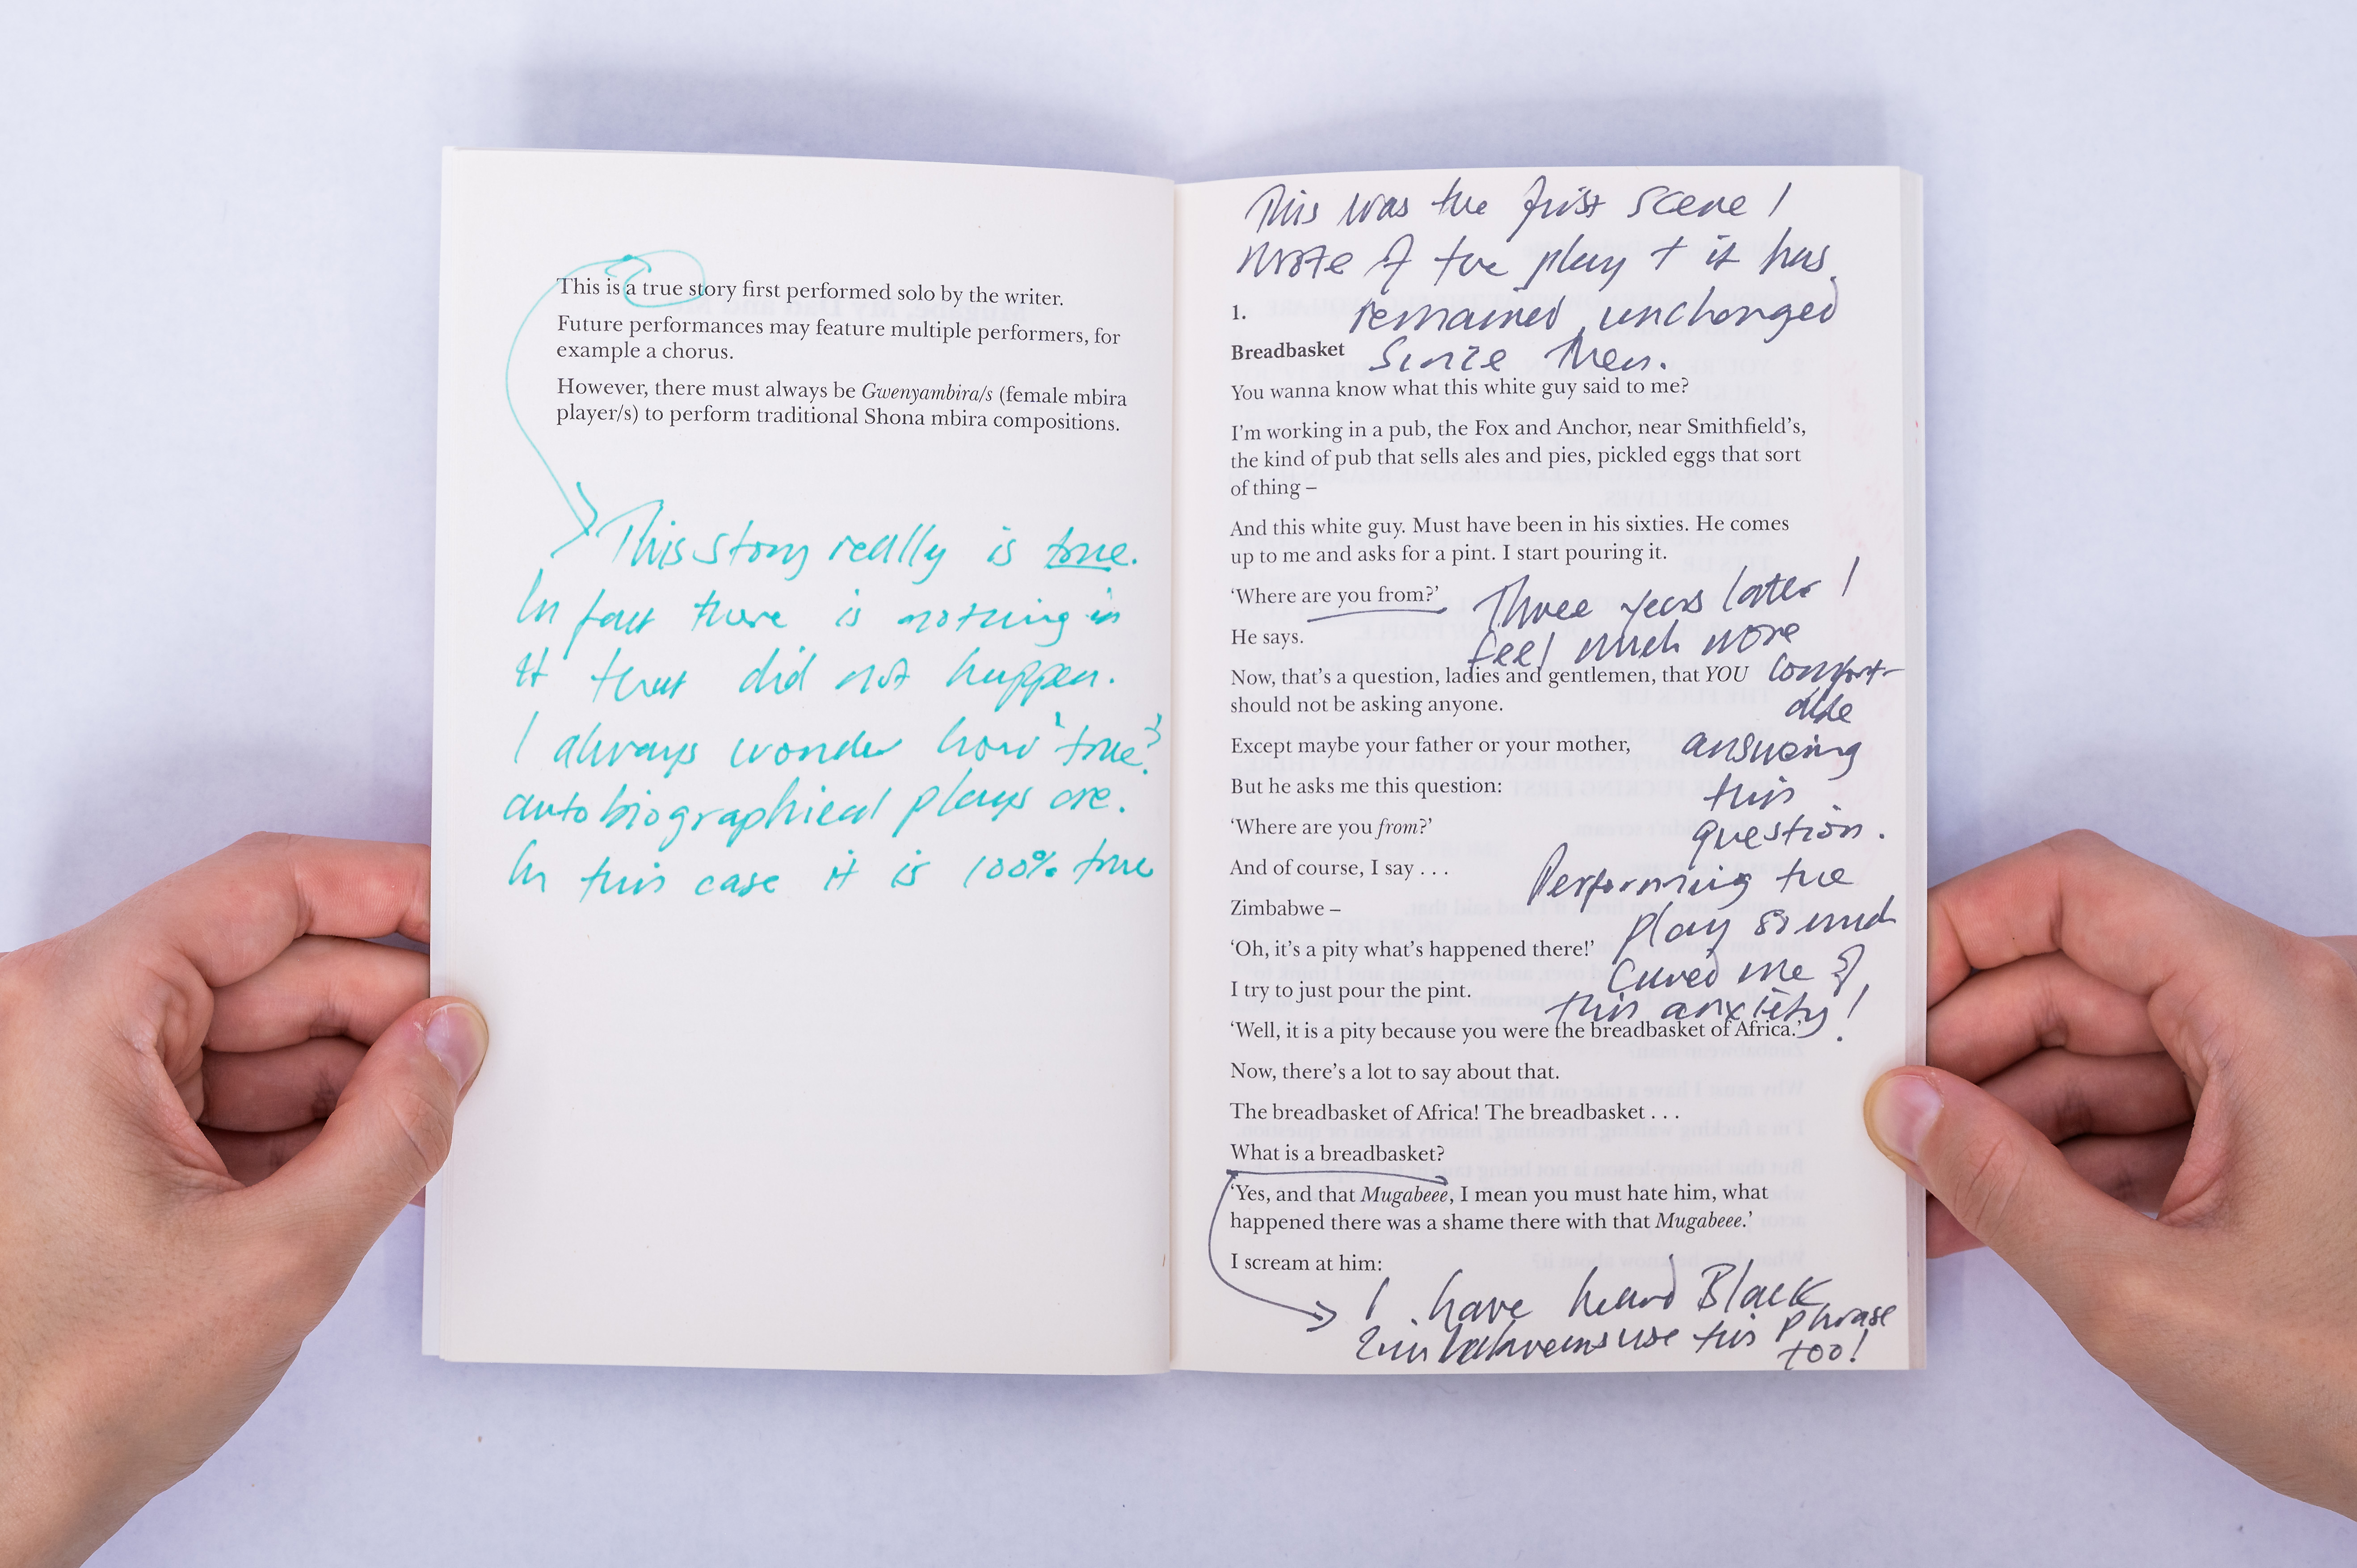 This is a true story first performed solo by the writer.
Future performances may feature multiple performers, for
example a chorus.
However, there must always be Gwenyambira/s (female mbira
player/s) to perform traditional Shona mbira compositions.
This story really is true.
In fact there is nothing in
it that did not happen.
I always wonder how 'true'
autobiographical plays are.
In this case it is 100% true
This was the first scene I
wrote of the play + it has
remained unchanged
since then.
1.
Breadbasket
You wanna know what this white guy said to me?
I'm working in a pub, the Fox and Anchor, near Smithfield's,
the kind of pub that sells ales and pies, pickled eggs that sort
of thing –
And this white guy. Must have been in his sixties. He comes
up to me and asks for a pint. I start pouring it.
'Where are you from?'
He says.
Now, that's a question, ladies and gentlemen, that YOU
should not be asking anyone.
Except maybe your father or your mother,
But he asks me this question:
'Where are you from?'
And of course, I say . . .
Zimbabwe –
'Oh, it's a pity what's happened there!'
I try to just pour the pint.
'Well, it is a pity because you were the breadbasket of Africa.'
Now, there's a lot to say about that.
The breadbasket of Africa! The breadbasket . . .
What is a breadbasket?
'Yes, and that Mugabeee, I mean you must hate him, what
happened there was a shame there with that Mugabeee.'
I scream at him:
Three years later I
feel much more
comfort-
able
answering
this
question.
Performing the
play
cured me of
this anxiety!
I have heard Black
Zimbabweans use this phrase
too!